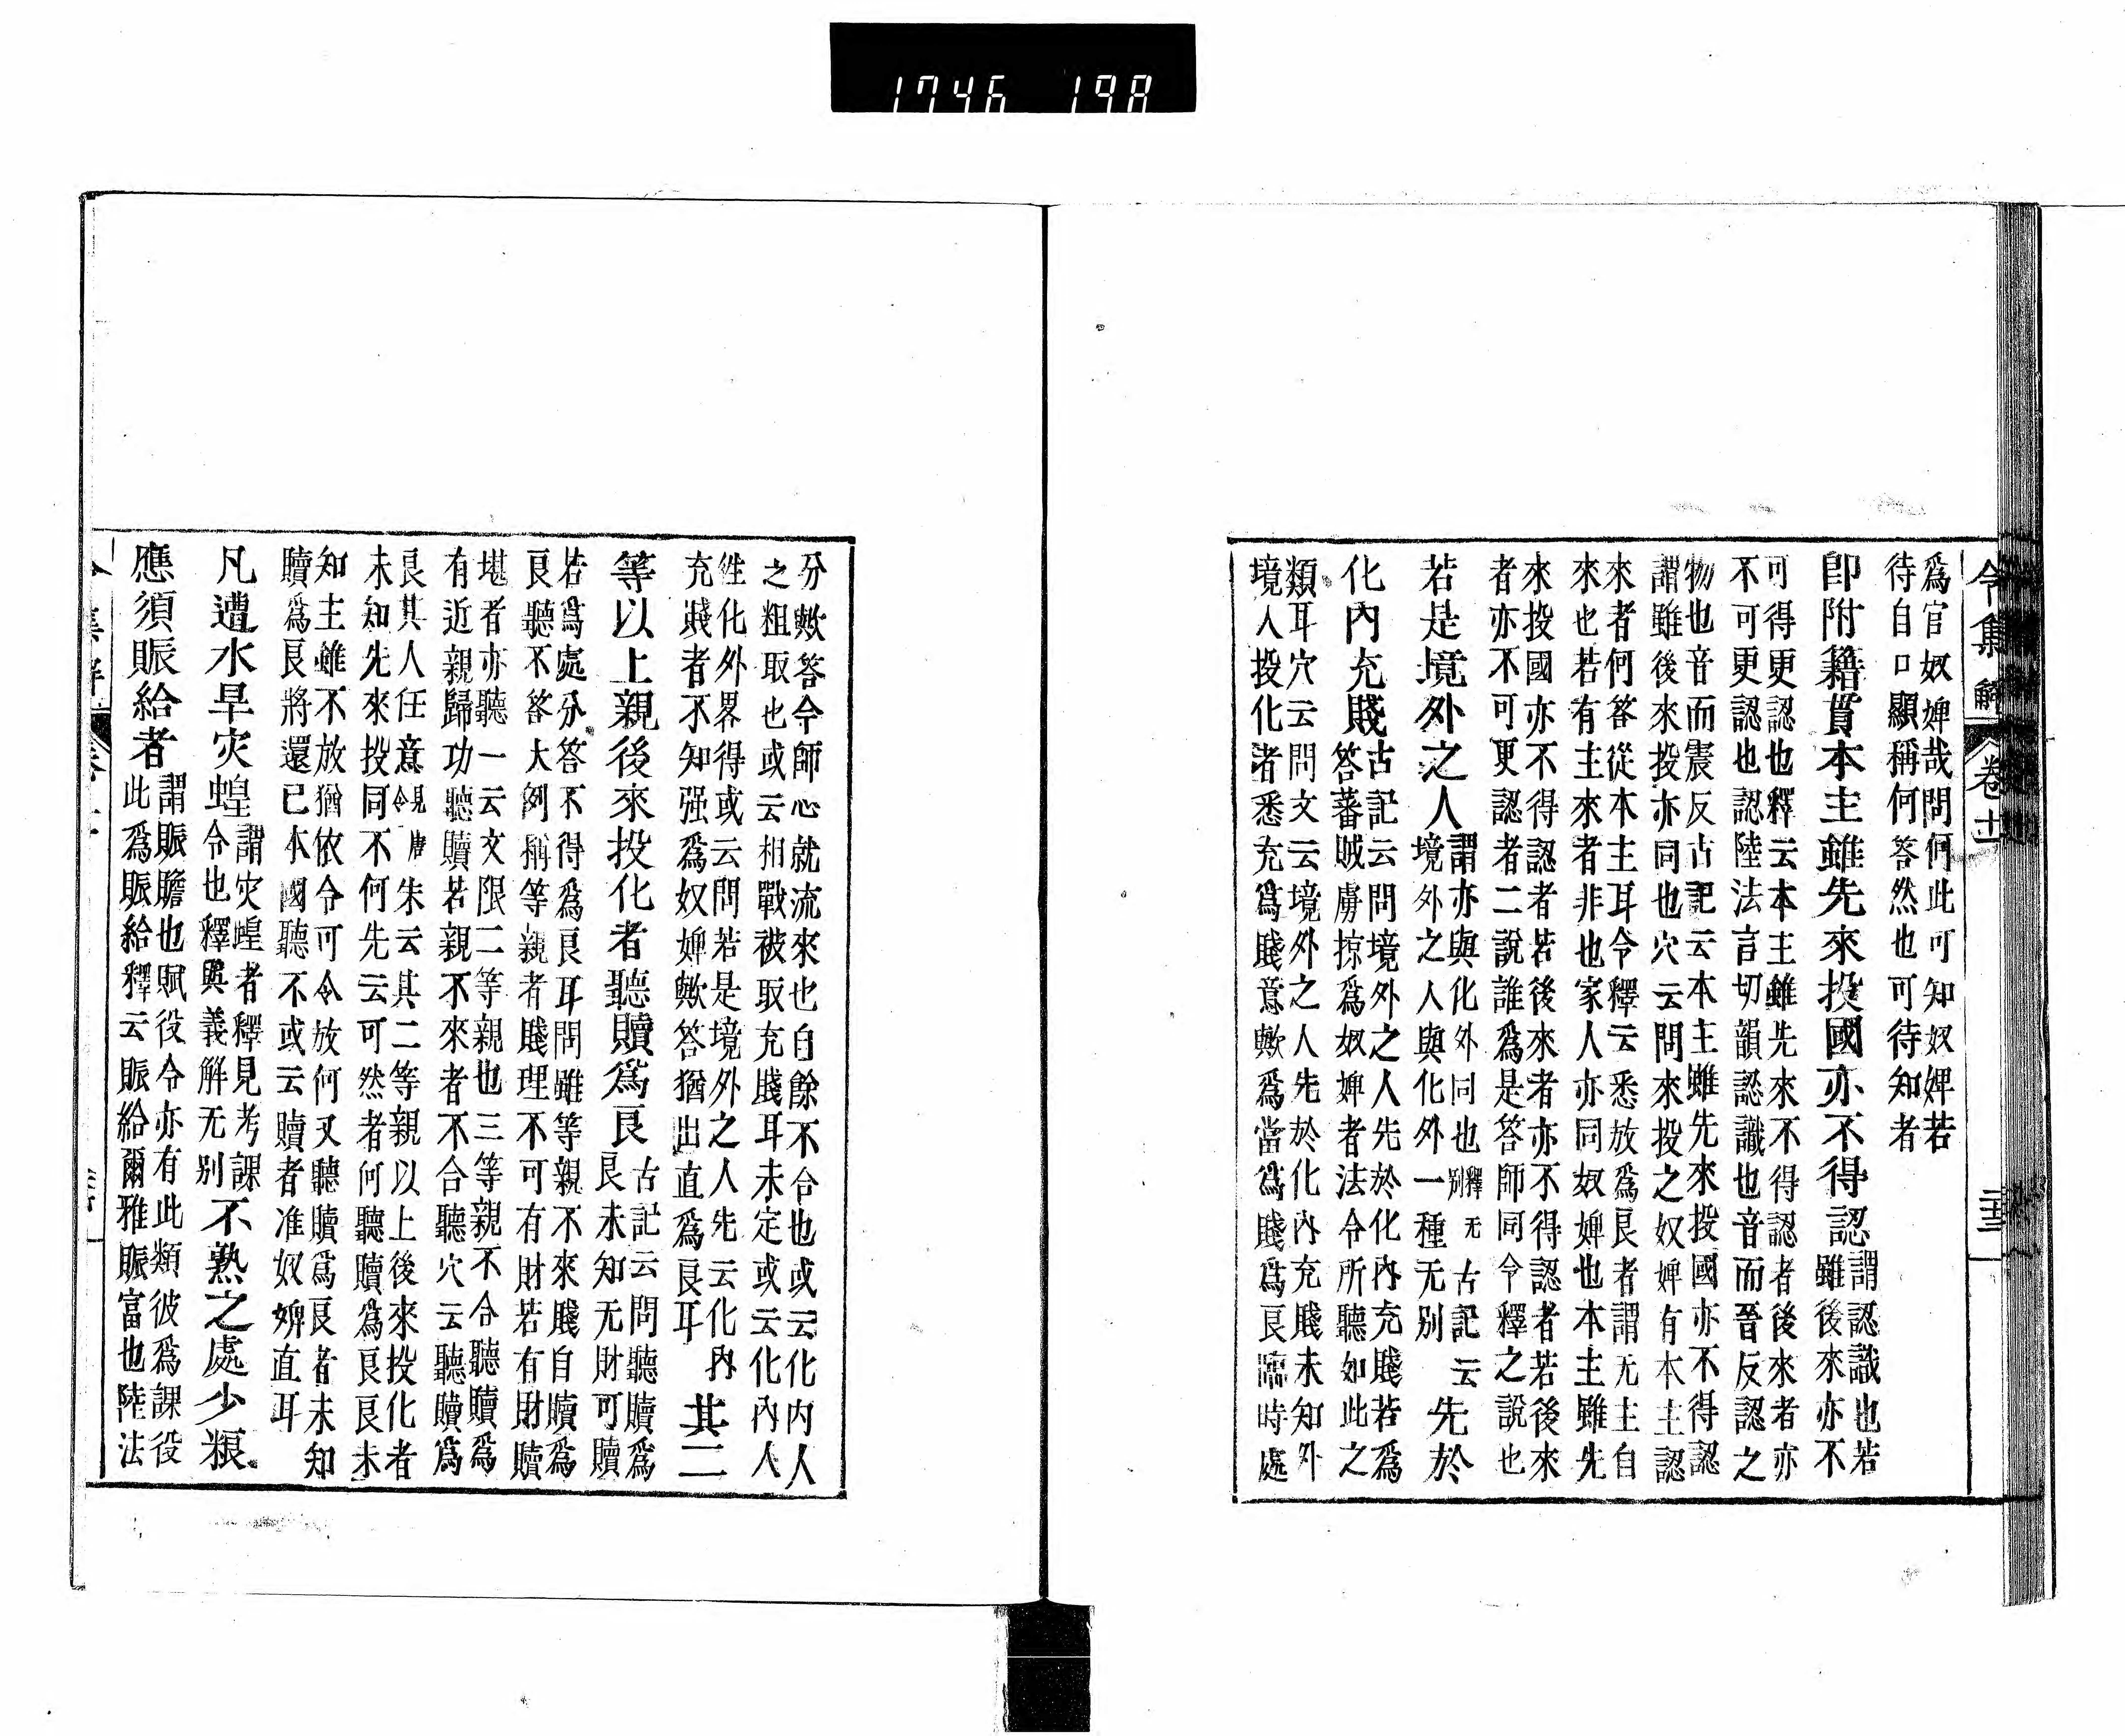 1746 198
令集解 卷十一 三十三
爲官奴婢哉問何此可知奴婢若
待自口顯稱何答然也可待知者
即附籍貫本主雖先來投國亦不得認
謂認識也若
雖後來亦不
可得更認也釋云本主雖先來不得認者後來者亦
不可更認也認陸法言切韻認識也音而晉反認之
物也音而震反古記云本主雖先來投國亦不得認
謂雖後來投亦同也穴云問來投之奴婢有本主認
來者何答從本主耳令釋云悉放爲良者謂无主自
來也若有主來者非也家人亦同奴婢也本主雖先
來投國亦不得認者若後來者亦不得認者若後來
者亦不可更認者二說誰爲是答師同令釋之說也
若是境外之人
謂亦與化外同也釋无別古記云
境外之人與化外一種无別
先於
化內充賤
古記云問境外之人先於化內充賤若爲
答蕃賊虜掠爲奴婢者法令所聽如此之
類耳穴云問文云境外之人先於化內充賤未知外
境人投化者悉充爲賤意歟爲當爲賤爲良臨時處
分歟答令師心就流來也自餘不合也或云化內人
之粗取也或云相戰被取充賤耳未定或云化內人
徃化外界得或云問若是境外之人先云化內
充賤者不知强爲奴婢歟答猶出直爲良耳
其二
等以上親後來投化者聽贖爲良
古記云問聽贖爲
良未知无財可贖
若爲處分答不得爲良耳問雖等親不來賤自贖爲
良聽不答大例稱等親者賤理不可有財若有財贖
堪者亦聽一云文限二等親也三等親不合聽贖爲
有近親歸功聽贖若親不來者不合聽穴云聽贖爲
良其人任意見唐令朱云其二等親以上後來投化者
未知先來投同不何先云可然者何聽贖爲良良未
知主雖不放猶依令可令放何又聽贖爲良者未知
贖爲良將還已本國聽不或云贖者准奴婢直耳
凡遭水旱灾蝗
謂灾蝗者釋見考課
令也釋與義解无別
不熟之處少粮
應須賑給者
謂賑贍也賦役令亦有此類彼爲課役
此爲賑給釋云賑給爾雅賑富也陸法